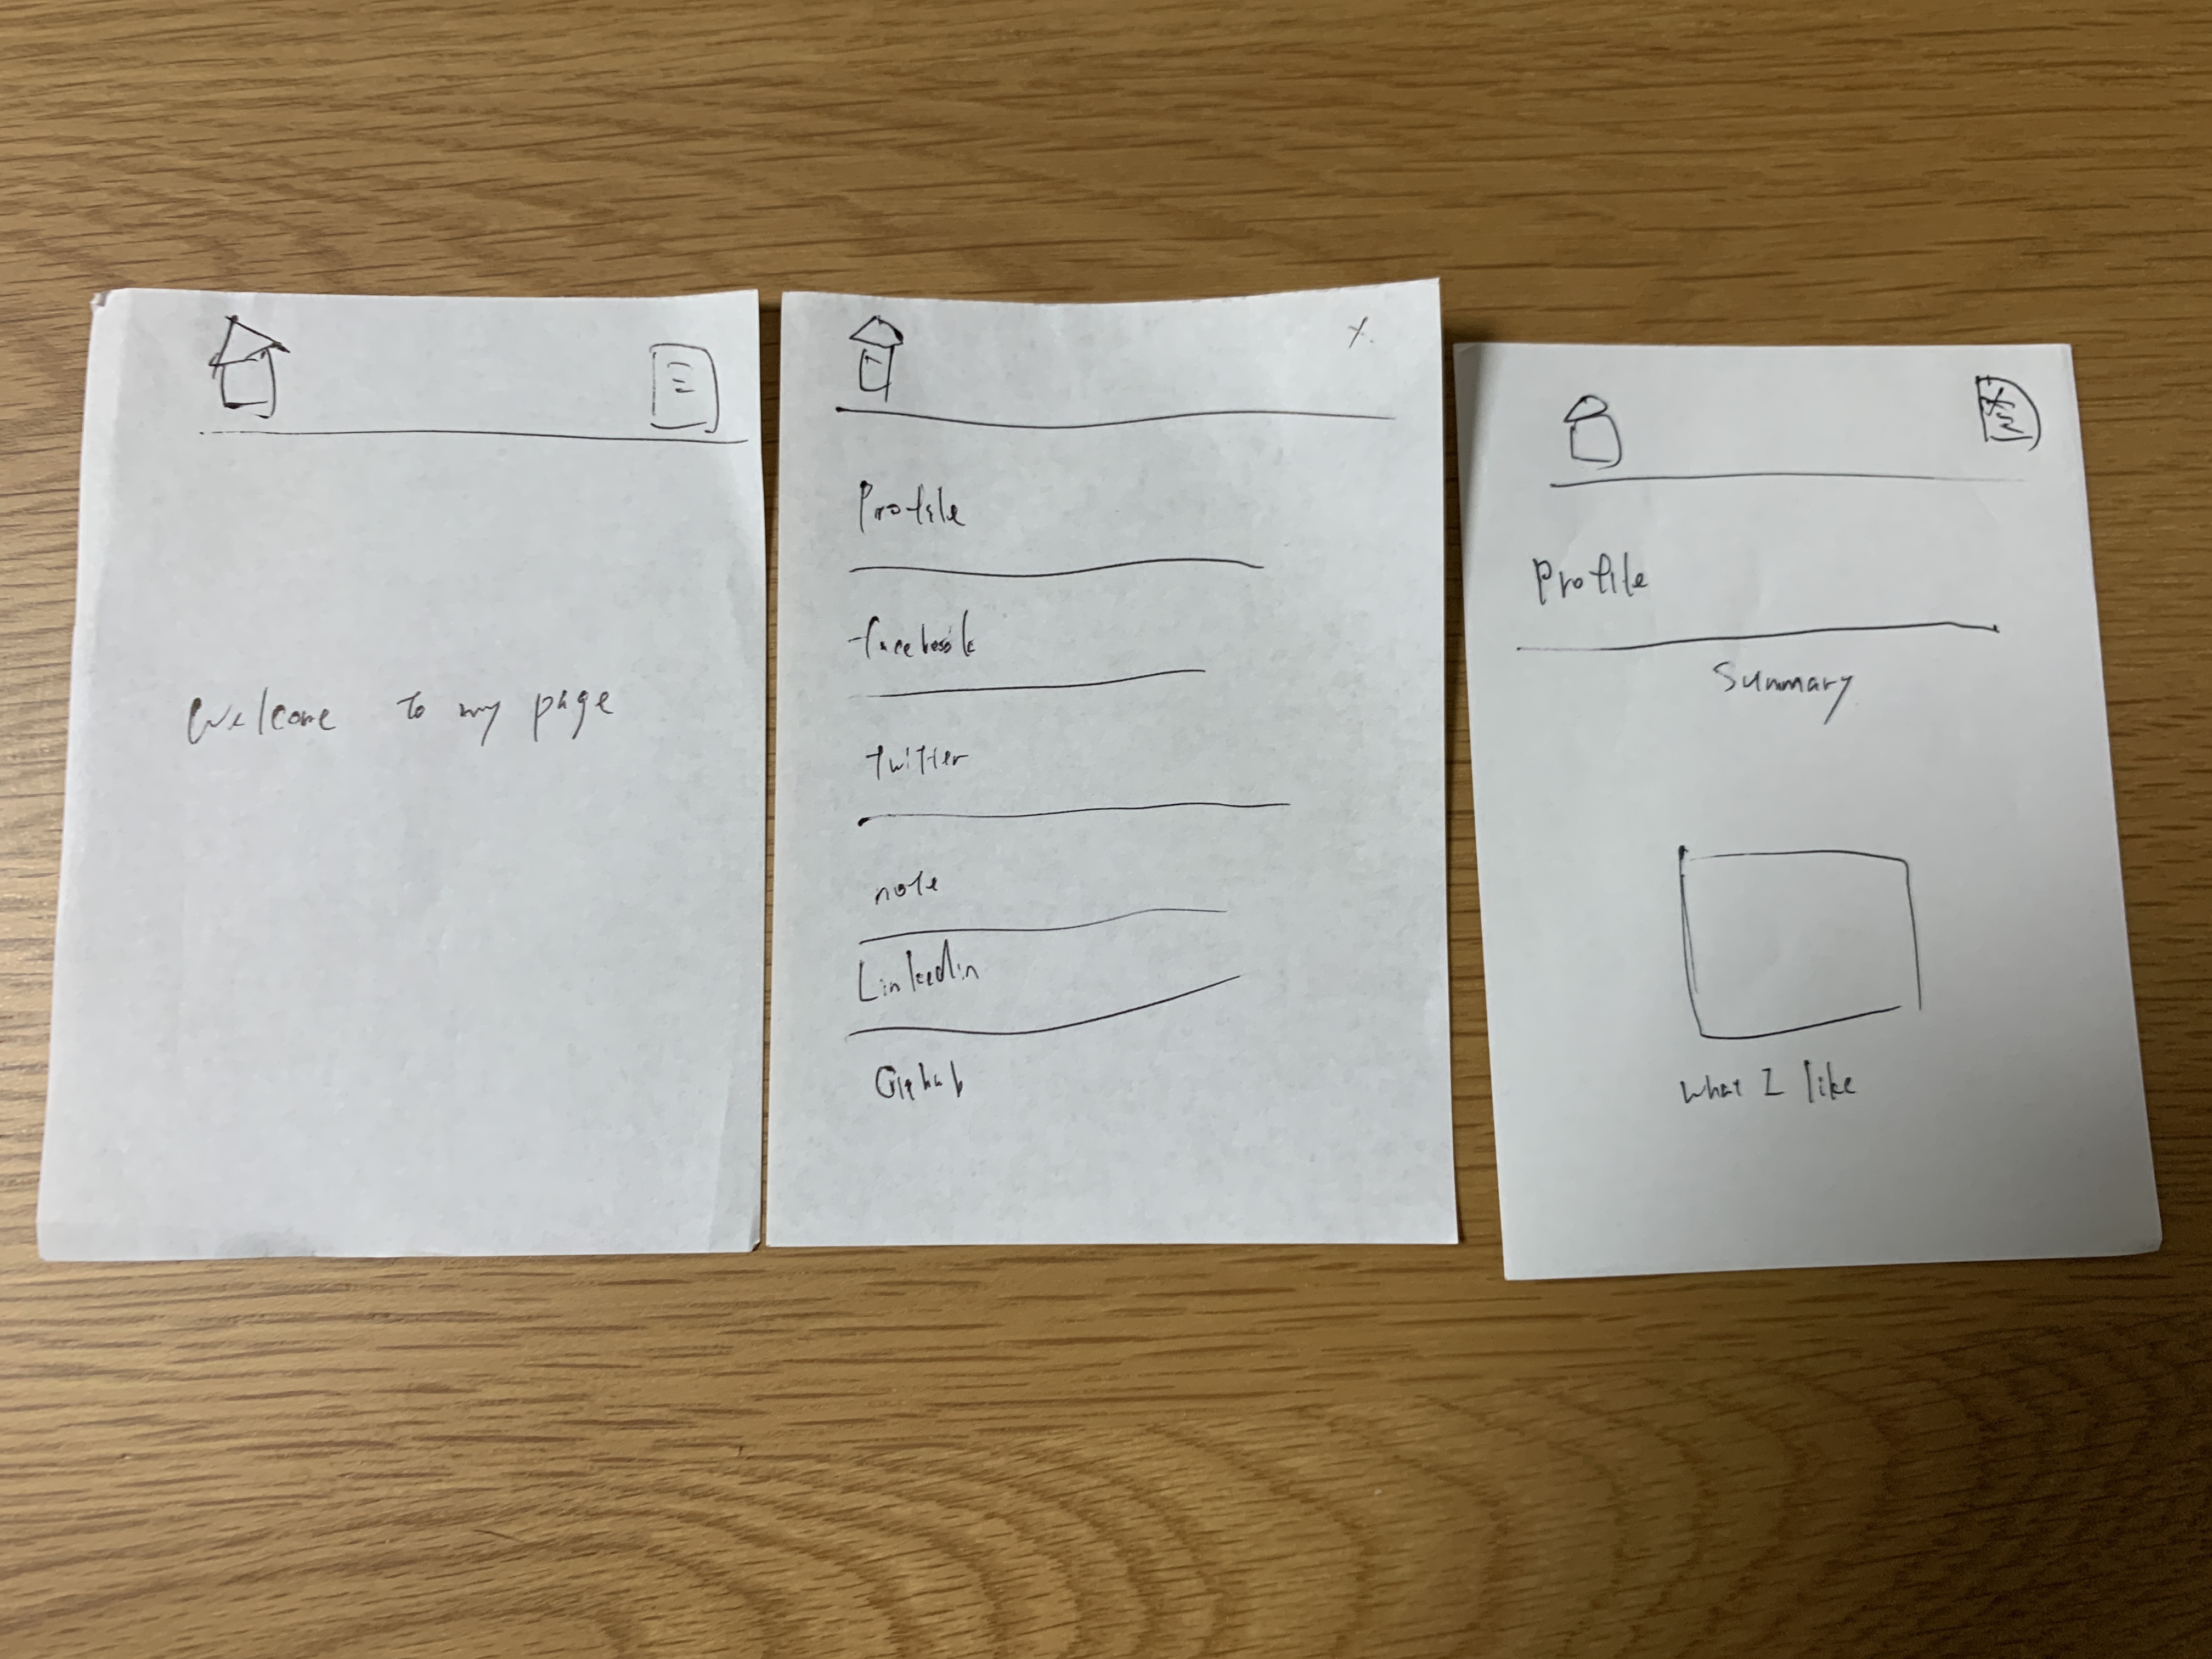 Welcome to my page
X
Profile
facebook
twitter
note
Linkedin
Github
Profile
Summary
What I like